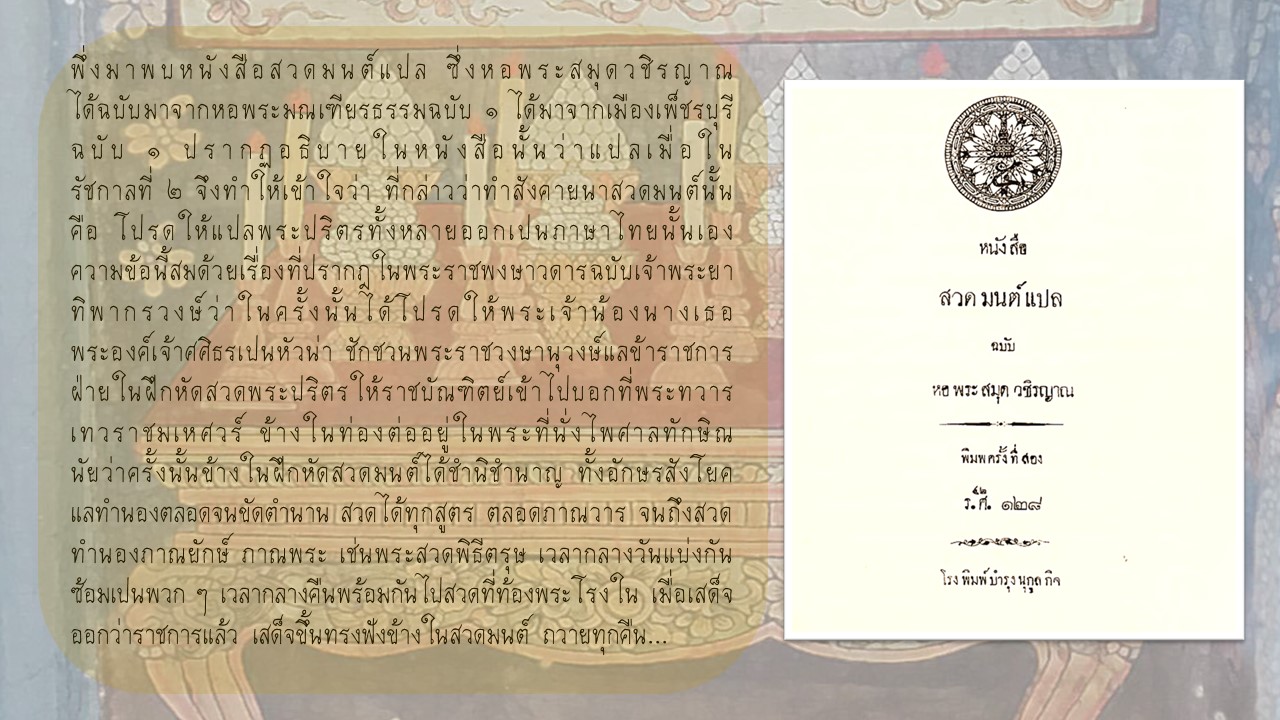 พึ่งมาพบหนังสือสวดมนต์แปล ซึ่งหอพระสมุดวชิรญาณ
ได้ฉบับมาจากหอพระมณเฑียรธรรมฉบับ ๑ ได้มาจากเมืองเพ็ชรบุรี
ฉบับ ๑ ปรากฏอธิบายในหนังสือนั้นว่าแปลเมื่อใน
รัชกาลที่ ๒ จึงทำให้เข้าใจว่า ที่กล่าวว่าทำสังคายนาสวดมนต์นั้น
คือ โปรดให้แปลพระปริตรทั้งหลายออกเปนภาษาไทยนั้นเอง
ความข้อนี้สมด้วยเรื่องที่ปรากฎในพระราชพงษาวดารฉบับเจ้าพระยา
ทิพากรวงษ์ว่าในครั้งนั้นได้โปรดให้พระเจ้าน้องนางเธอ
พระองค์เจ้าศศิธรเปนหัวน่า ชักชวนพระราชวงษานุวงษ์แลข้าราชการ
ฝ่ายในฝึกหัดสวดพระปริตรให้ราชบัณฑิตย์เข้าไปบอกที่พระทวาร
เทวราชมเหศวร์ ข้างในท่องต่ออยู่ในพระที่นั่งไพศาลทักษิณ
นัยว่าครั้งนั้นข้างในฝึกหัดสวดมนต์ได้ชำนิชำนาญ ทั้งอักษรสังโยค
แลทำนองตลอดจนขัดตำนาน สวดได้ทุกสูตร ตลอดภาณวาร จนถึงสวด
ทำนองภาณยักษ์ ภาณพระ เช่นพระสวดพิธีตรุษ เวลากลางวันแบ่งกัน
ซ้อมเปนพวก ๆ เวลากลางคืนพร้อมกันไปสวดที่ท้องพระโรงใน เมื่อเสด็จ
ออกว่าราชการแล้ว เสด็จขึ้นทรงฟังข้างในสวดมนต์ ถวายทุกคืน...
หนังสือ
สวดมนต์แปล
ฉบับ
หอพระสมุดวชิรญาณ
พิมพ์ครั้งที่สอง
ร.ศ. ๑๒๘
โรงพิมพ์บำรุงนุกูลกิจ